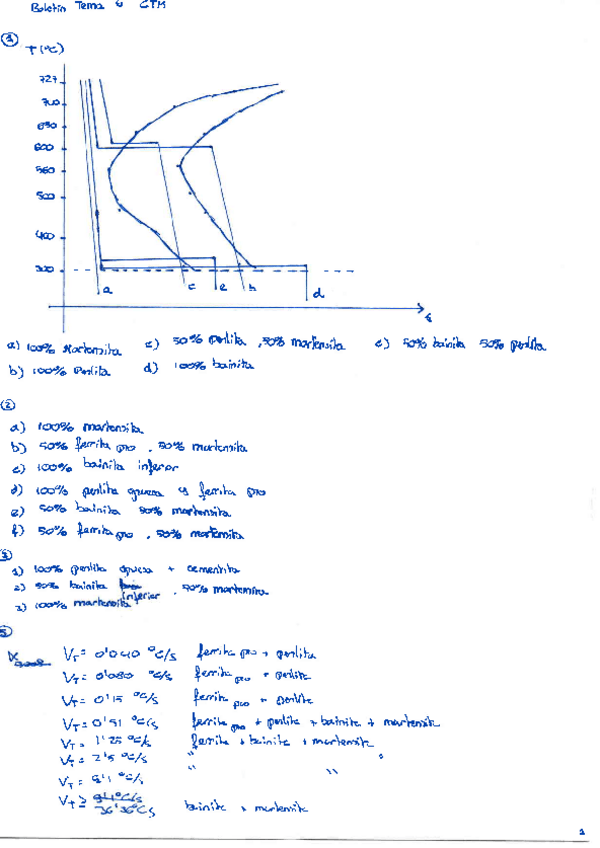 Boletín Tema 6 CTM
①
T (ºC)
727
700
650
600
560
500
400
300
a c e b d
t
a) 100% Martensita c) 50% perlita, 50% martensita e) 50% bainita 50% perlita
b) 100% Perlita d) 100% bainita
②
a) 100% martensita
b) 50% ferrita pro, 50% martensita
c) 100% bainita inferior
d) 100% perlita gruesa y ferrita pro
e) 50% bainita 50% martensita
f) 50% ferrita pro, 50% martensita
③
1) 100% perlita gruesa + cementita
2) 50% bainita inferior, 50% martensita
3) 100% martensita
⑤
VT = 0'040 ºC/s ferrita pro + perlita
VT = 0'080 ºC/s ferrita pro + perlita
VT = 0'15 ºC/s ferrita pro + perlita
VT = 0'51 ºC/s ferrita pro + perlita + bainita + martensita
VT = 1'25 ºC/s ferrita + bainita + martensita
VT = 2'5 ºC/s " "
VT = 5'1 ºC/s " "
VT ≥ 36'36ºC/s bainita + martensita
1